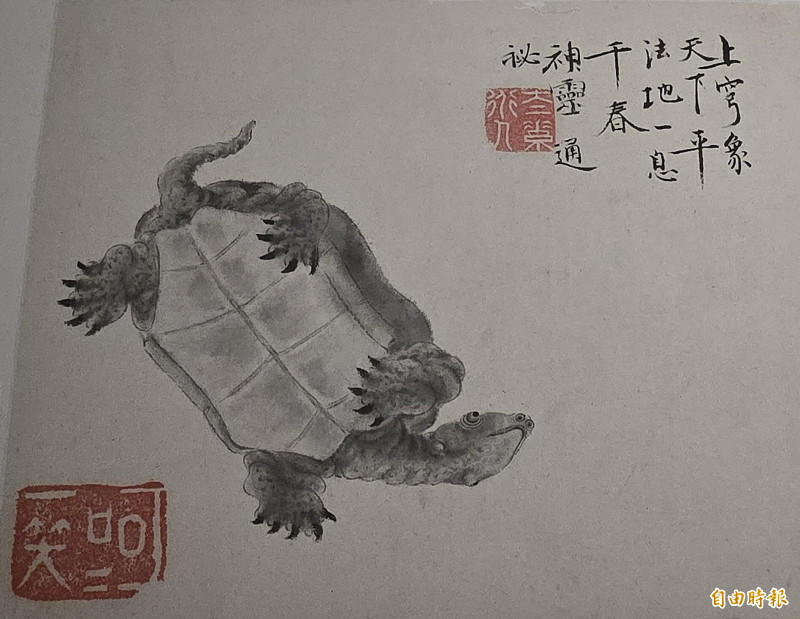 上穹象
天下平
法地一息
千春
神靈通
祕
呵〻
一笑
自由時報